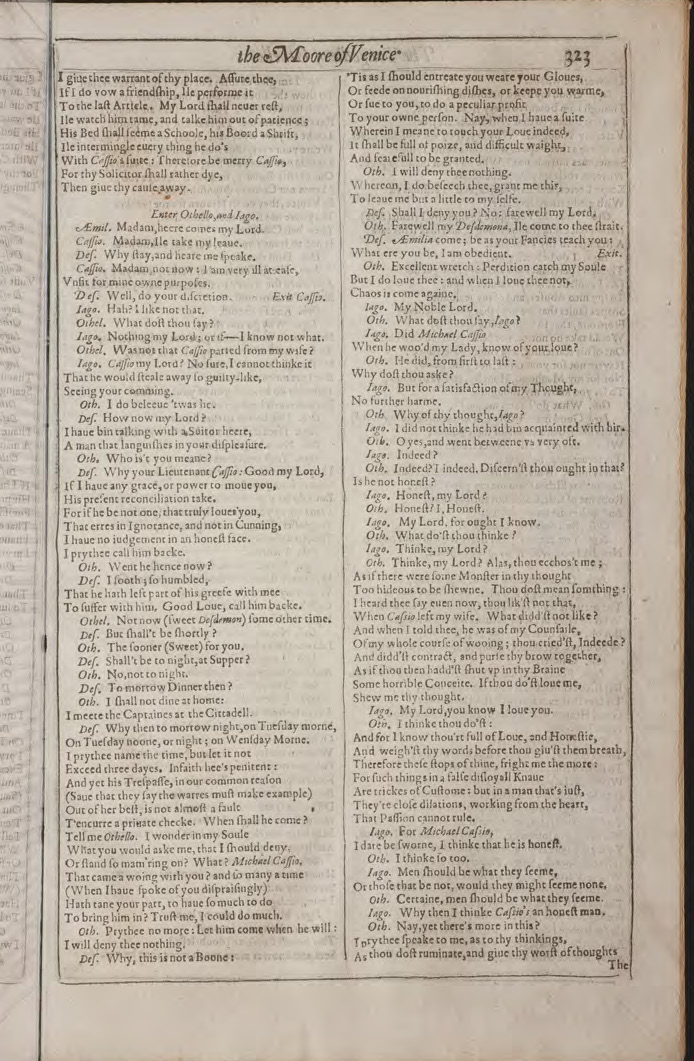 the Moore of Venice. 323
I giue thee warrant of thy place. Assure thee,
If I do vow a friendship, Ile performe it
To the last Article. My Lord shall neuer rest,
Ile watch him tame, and talke him out of patience;
His Bed shall seeme a Schoole, his Boord a Shrift,
Ile intermingle euery thing he do's
With Cassio's suite: Therefore be merry Cassio,
For thy Solicitor shall rather dye,
Then giue thy cause away.
Enter Othello, and Iago.
Æmil. Madam, heere comes my Lord.
Cassio. Madam, Ile take my leaue.
Des. Why stay, and heare me speake.
Cassio. Madam, not now: I am very ill at ease,
Vnfit for mine owne purposes.
Des. Well, do your discretion. Exit Cassio.
Iago. Hah? I like not that.
Othel. What dost thou say?
Iago. Nothing my Lord; or if—I know not what.
Othel. Was not that Cassio parted from my wife?
Iago. Cassio my Lord? No sure, I cannot thinke it
That he would steale away so guilty-like,
Seeing your comming.
Oth. I do beleeue 'twas he.
Des. How now my Lord?
I haue bin talking with a Suitor heere,
A man that languishes in your displeasure.
Oth. Who is't you meane?
Des. Why your Lieutenant Cassio: Good my Lord,
If I haue any grace, or power to moue you,
His present reconciliation take.
For if he be not one, that truly loues you,
That erres in Ignorance, and not in Cunning,
I haue no iudgement in an honest face.
I prythee call him backe.
Oth. Went he hence now?
Des. I sooth; so humbled,
That he hath left part of his greefe with mee
To suffer with him. Good Loue, call him backe.
Othel. Not now (sweet Desdemon) some other time.
Des. But shall't be shortly?
Oth. The sooner (Sweet) for you.
Des. Shall't be to night, at Supper?
Oth. No, not to night.
Des. To morrow Dinner then?
Oth. I shall not dine at home:
I meete the Captaines at the Cittadell.
Des. Why then to morrow night, on Tuesday morne,
On Tuesday noone, or night; on Wensday Morne.
I prythee name the time, but let it not
Exceed three dayes. Infaith hee's penitent:
And yet his Trespasse, in our common reason
(Saue that they say the warres must make example)
Out of her best, is not almost a fault
T'encurre a priuate checke. When shall he come?
Tell me Othello. I wonder in my Soule
What you would aske me, that I should deny,
Or stand so mam'ring on? What? Michael Cassio,
That came a woing with you? and so many a time
(When I haue spoke of you dispraisingly)
Hath tane your part, to haue so much to do
To bring him in? Trust me, I could do much.
Oth. Prythee no more: Let him come when he will:
I will deny thee nothing.
Des. Why, this is not a Boone:
'Tis as I should entreate you weare your Gloues,
Or feede on nourishing dishes, or keepe you warme,
Or sue to you, to do a peculiar profit
To your owne person. Nay, when I haue a suite
Wherein I meane to touch your Loue indeed,
It shall be full of poize, and difficult waight,
And fearefull to be granted.
Oth. I will deny thee nothing.
Whereon, I do beseech thee, grant me this,
To leaue me but a little to my selfe.
Des. Shall I deny you? No: farewell my Lord.
Oth. Farewell my Desdemona, Ile come to thee strait.
Des. Æmilia come; be as your Fancies teach you:
What ere you be, I am obedient. Exit.
Oth. Excellent wretch: Perdition catch my Soule
But I do loue thee: and when I loue thee not,
Chaos is come againe.
Iago. My Noble Lord.
Oth. What dost thou say, Iago?
Iago. Did Michael Cassio
When he woo'd my Lady, know of your loue?
Oth. He did, from first to last:
Why dost thou aske?
Iago. But for a satisfaction of my Thought,
No further harme.
Oth. Why of thy thought, Iago?
Iago. I did not thinke he had bin acquainted with hir.
Oth. O yes, and went betweene vs very oft.
Iago. Indeed?
Oth. Indeed? I indeed. Discern'st thou ought in that?
Is he not honest?
Iago. Honest, my Lord?
Oth. Honest? I, Honest.
Iago. My Lord, for ought I know.
Oth. What do'st thou thinke?
Iago. Thinke, my Lord?
Oth. Thinke, my Lord? Alas, thou ecchos't me;
As if there were some Monster in thy thought
Too hideous to be shewne. Thou dost mean somthing:
I heard thee say euen now, thou lik'st not that,
When Cassio left my wife. What didd'st not like?
And when I told thee, he was of my Counsaile,
Of my whole course of wooing; thou cried'st, Indeede?
And didd'st contract, and purse thy brow together,
As if thou then hadd'st shut vp in thy Braine
Some horrible Conceite. If thou do'st loue me,
Shew me thy thought.
Iago. My Lord, you know I loue you.
Oth. I thinke thou do'st:
And for I know thou'rt full of Loue, and Honestie,
And weigh'st thy words before thou giu'st them breath,
Therefore these stops of thine, fright me the more:
For such things in a false disloyall Knaue
Are trickes of Custome: but in a man that's iust,
They're close dilations, working from the heart,
That Passion cannot rule.
Iago. For Michael Cassio,
I dare be sworne, I thinke that he is honest.
Oth. I thinke so too.
Iago. Men should be what they seeme,
Or those that be not, would they might seeme none.
Oth. Certaine, men should be what they seeme.
Iago. Why then I thinke Cassio's an honest man.
Oth. Nay, yet there's more in this?
I prythee speake to me, as to thy thinkings,
As thou dost ruminate, and giue thy worst of thoughts
The